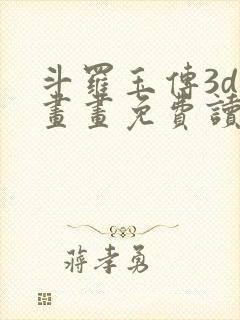 斗羅玉傳3d
畫畫免費讀
蔣孝勇